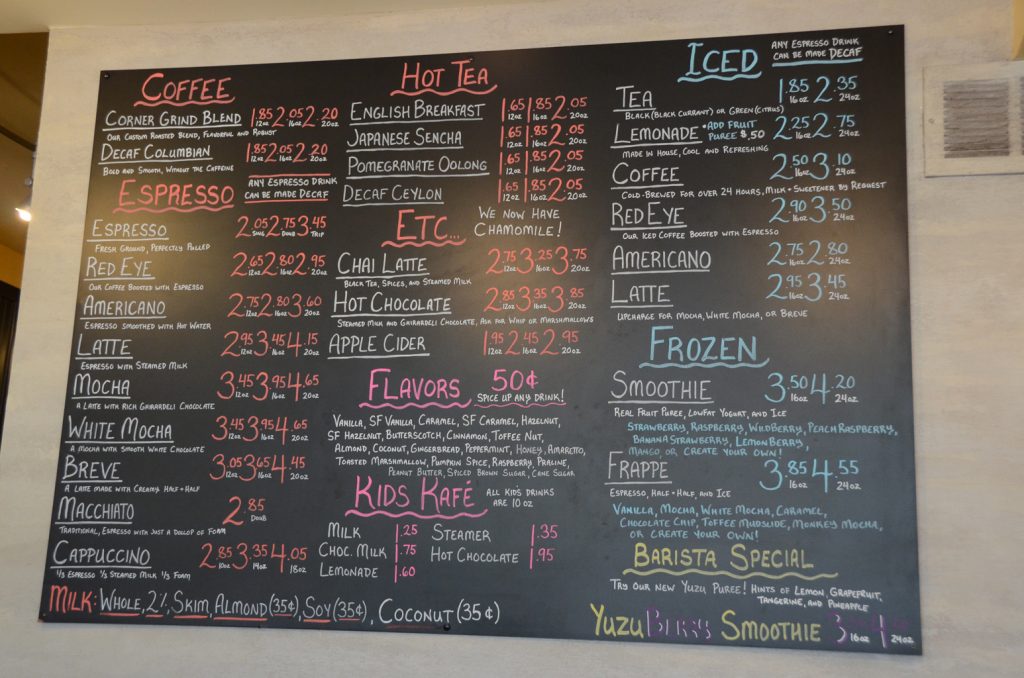 COFFEE
CORNER GRIND BLEND 1.85 12oz 2.05 16oz 2.20 20oz
OUR CUSTOM ROASTED BLEND, FLAVORFUL AND ROBUST
DECAF COLUMBIAN 1.85 12oz 2.05 16oz 2.20 20oz
BOLD AND SMOOTH, WITHOUT THE CAFFEINE
ESPRESSO
ANY ESPRESSO DRINK
CAN BE MADE DECAF
ESPRESSO 2.05 SING 2.75 DOUB 3.45 TRIP
FRESH GROUND, PERFECTLY PULLED
RED EYE 2.65 12oz 2.80 16oz 2.95 20oz
OUR COFFEE BOOSTED WITH ESPRESSO
AMERICANO 2.75 12oz 2.80 16oz 3.60 20oz
ESPRESSO SMOOTHED WITH HOT WATER
LATTE 2.95 12oz 3.45 16oz 4.15 20oz
ESPRESSO WITH STEAMED MILK
MOCHA 3.45 12oz 3.95 16oz 4.65 20oz
A LATTE WITH RICH GHIRARDELI CHOCOLATE
WHITE MOCHA 3.45 12oz 3.95 16oz 4.65 20oz
A MOCHA WITH SMOOTH WHITE CHOCOLATE
BREVE 3.05 12oz 3.65 16oz 4.45 20oz
A LATTE MADE WITH CREAMY HALF + HALF
MACCHIATO 2.85 DOUB
TRADITIONAL, ESPRESSO WITH JUST A DOLLOP OF FOAM
CAPPUCCINO 2.85 10oz 3.35 14oz 4.05 18oz
1/3 ESPRESSO 1/3 STEAMED MILK 1/3 FOAM
MILK: WHOLE, 2%, SKIM, ALMOND (35¢), SOY (35¢), COCONUT (35¢)
HOT TEA
ENGLISH BREAKFAST 1.65 12oz 1.85 16oz 2.05 20oz
JAPANESE SENCHA 1.65 12oz 1.85 16oz 2.05 20oz
POMEGRANATE OOLONG 1.65 12oz 1.85 16oz 2.05 20oz
DECAF CEYLON 1.65 12oz 1.85 16oz 2.05 20oz
ETC...
WE NOW HAVE
CHAMOMILE!
CHAI LATTE 2.75 12oz 3.25 16oz 3.75 20oz
BLACK TEA, SPICES, AND STEAMED MILK
HOT CHOCOLATE 2.85 12oz 3.35 16oz 3.85 20oz
STEAMED MILK AND GHIRARDELI CHOCOLATE, ASK FOR WHIP OR MARSHMALLOWS
APPLE CIDER 1.95 12oz 2.45 16oz 2.95 20oz
FLAVORS 50¢
SPICE UP ANY DRINK!
VANILLA, SF VANILLA, CARAMEL, SF CARAMEL, HAZELNUT,
SF HAZELNUT, BUTTERSCOTCH, CINNAMON, TOFFEE NUT,
ALMOND, COCONUT, GINGERBREAD, PEPPERMINT, HONEY, AMARETTO,
TOASTED MARSHMALLOW, PUMPKIN SPICE, RASPBERRY, PRALINE,
PEANUT BUTTER, SPICED BROWN SUGAR, CANE SUGAR
KIDS KAFÉ
ALL KIDS DRINKS
ARE 10 OZ
MILK 1.25 STEAMER 1.35
CHOC. MILK 1.75 HOT CHOCOLATE 1.95
LEMONADE 1.60
ICED
ANY ESPRESSO DRINK
CAN BE MADE DECAF
TEA 1.85 16oz 2.35 24oz
BLACK (BLACK CURRANT) OR GREEN (CITRUS)
LEMONADE + ADD FRUIT PUREE $.50 2.25 16oz 2.75 24oz
MADE IN HOUSE, COOL AND REFRESHING
COFFEE 2.50 16oz 3.10 24oz
COLD-BREWED FOR OVER 24 HOURS, MILK + SWEETENER BY REQUEST
RED EYE 2.90 16oz 3.50 24oz
OUR ICED COFFEE BOOSTED WITH ESPRESSO
AMERICANO 2.75 16oz 2.80 24oz
LATTE 2.95 16oz 3.45 24oz
UPCHARGE FOR MOCHA, WHITE MOCHA, OR BREVE
FROZEN
SMOOTHIE 3.50 16oz 4.20 24oz
REAL FRUIT PUREE, LOWFAT YOGHURT, AND ICE
STRAWBERRY, RASPBERRY, WILDBERRY, PEACH RASPBERRY,
BANANA STRAWBERRY, LEMON BERRY,
MANGO, OR CREATE YOUR OWN!
FRAPPE 3.85 16oz 4.55 24oz
ESPRESSO, HALF + HALF, AND ICE
VANILLA, MOCHA, WHITE MOCHA, CARAMEL,
CHOCOLATE CHIP, TOFFEE MUDSLIDE, MONKEY MOCHA,
OR CREATE YOUR OWN!
BARISTA SPECIAL
TRY OUR NEW YUZU PUREE! HINTS OF LEMON, GRAPEFRUIT,
TANGERINE, AND PINEAPPLE
YUZU BERRY SMOOTHIE 3 16oz 4 24oz